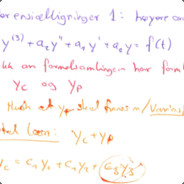 erensielligninger 1: høyere or
y⁽³⁾ + a₂y'' + a₁y' + a₀y = f(t)
om formelsamlingen har form
y_c og y_p
Husk at y_p skal finnes m/
løsn: y_c + y_p
y_c = c₁y₁ + c₂y₂ + c₃y₃